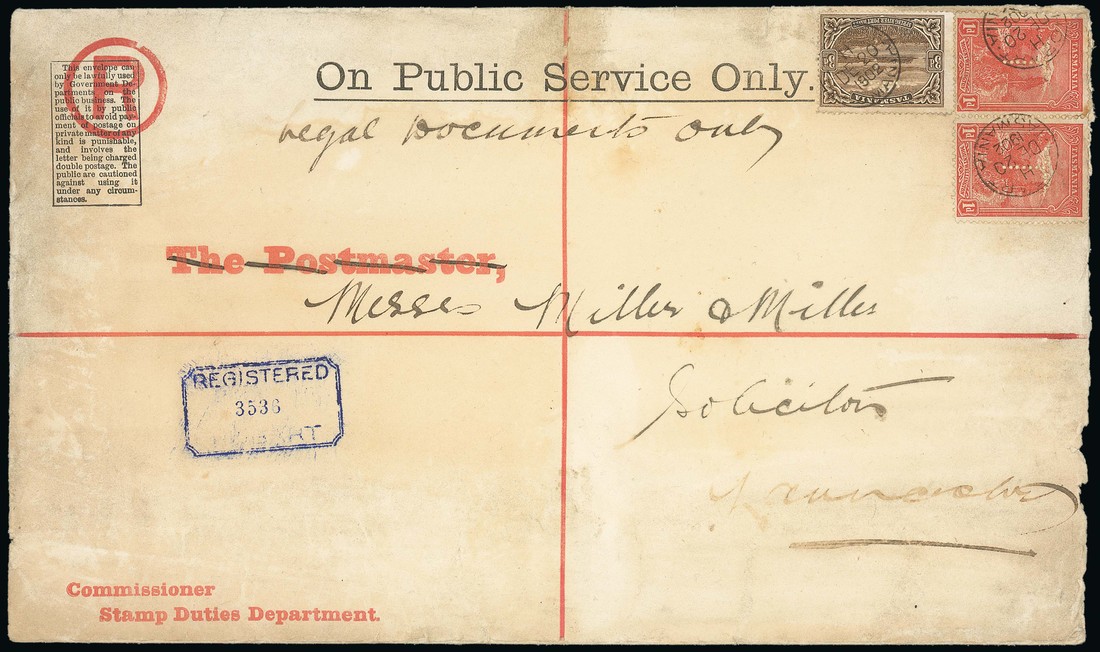 R
This envelope can
only be lawfully used
by Government De-
partments on the
public business. The
use of it by public
officials to avoid pay-
ment of postage on
private matter of any
kind is punishable,
and involves the
letter being charged
double postage. The
public are cautioned
against using it
under any circum-
stances.
On Public Service Only.
TASMANIA
TASMANIA
1d
1d
TASMANIA
1d
1d
Legal Documents Only
The Postmaster,
Messrs Miller & Miller
REGISTERED
3536
Solicitors
Launceston
Commissioner
Stamp Duties Department.